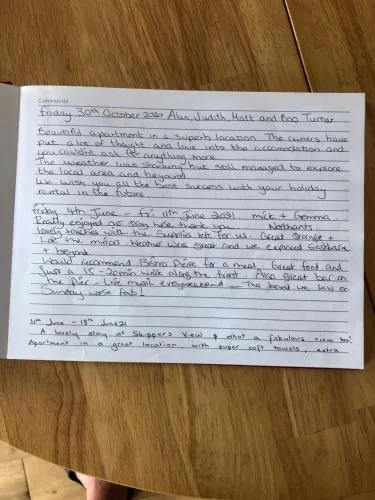 Comments
Friday 30th October 2020 Alan, Judith, Matt and Boo Turner
Beautiful apartment in a superb location. The owners have
put a lot of thought and love into the accomodation and
you couldn't ask for anything more
The weather was shocking! but still managed to explore
the local area and beyond.
We wish you all the best success with your holiday
rental in the future
Friday 4th June - Fri 11th June 2021 mick + Gemma.
Really enjoyed our stay here thank you Northants.
lovely touches with the supplies left for us. Great storage +
the mirrors. Weather was great and we explored Eastbourne
+ beyond
Would recommend Bistro Pierre for a meal. Great food and
Just a 15-20min walk along the front. Also great bar on
the Pier - Live music every weekend - The band we saw on
Sunday were Fab!
11th June - 18th June 21
A lovely stay at Skippers View & what a fabulous view too!
Apartment in a great location, with super soft towels, extra